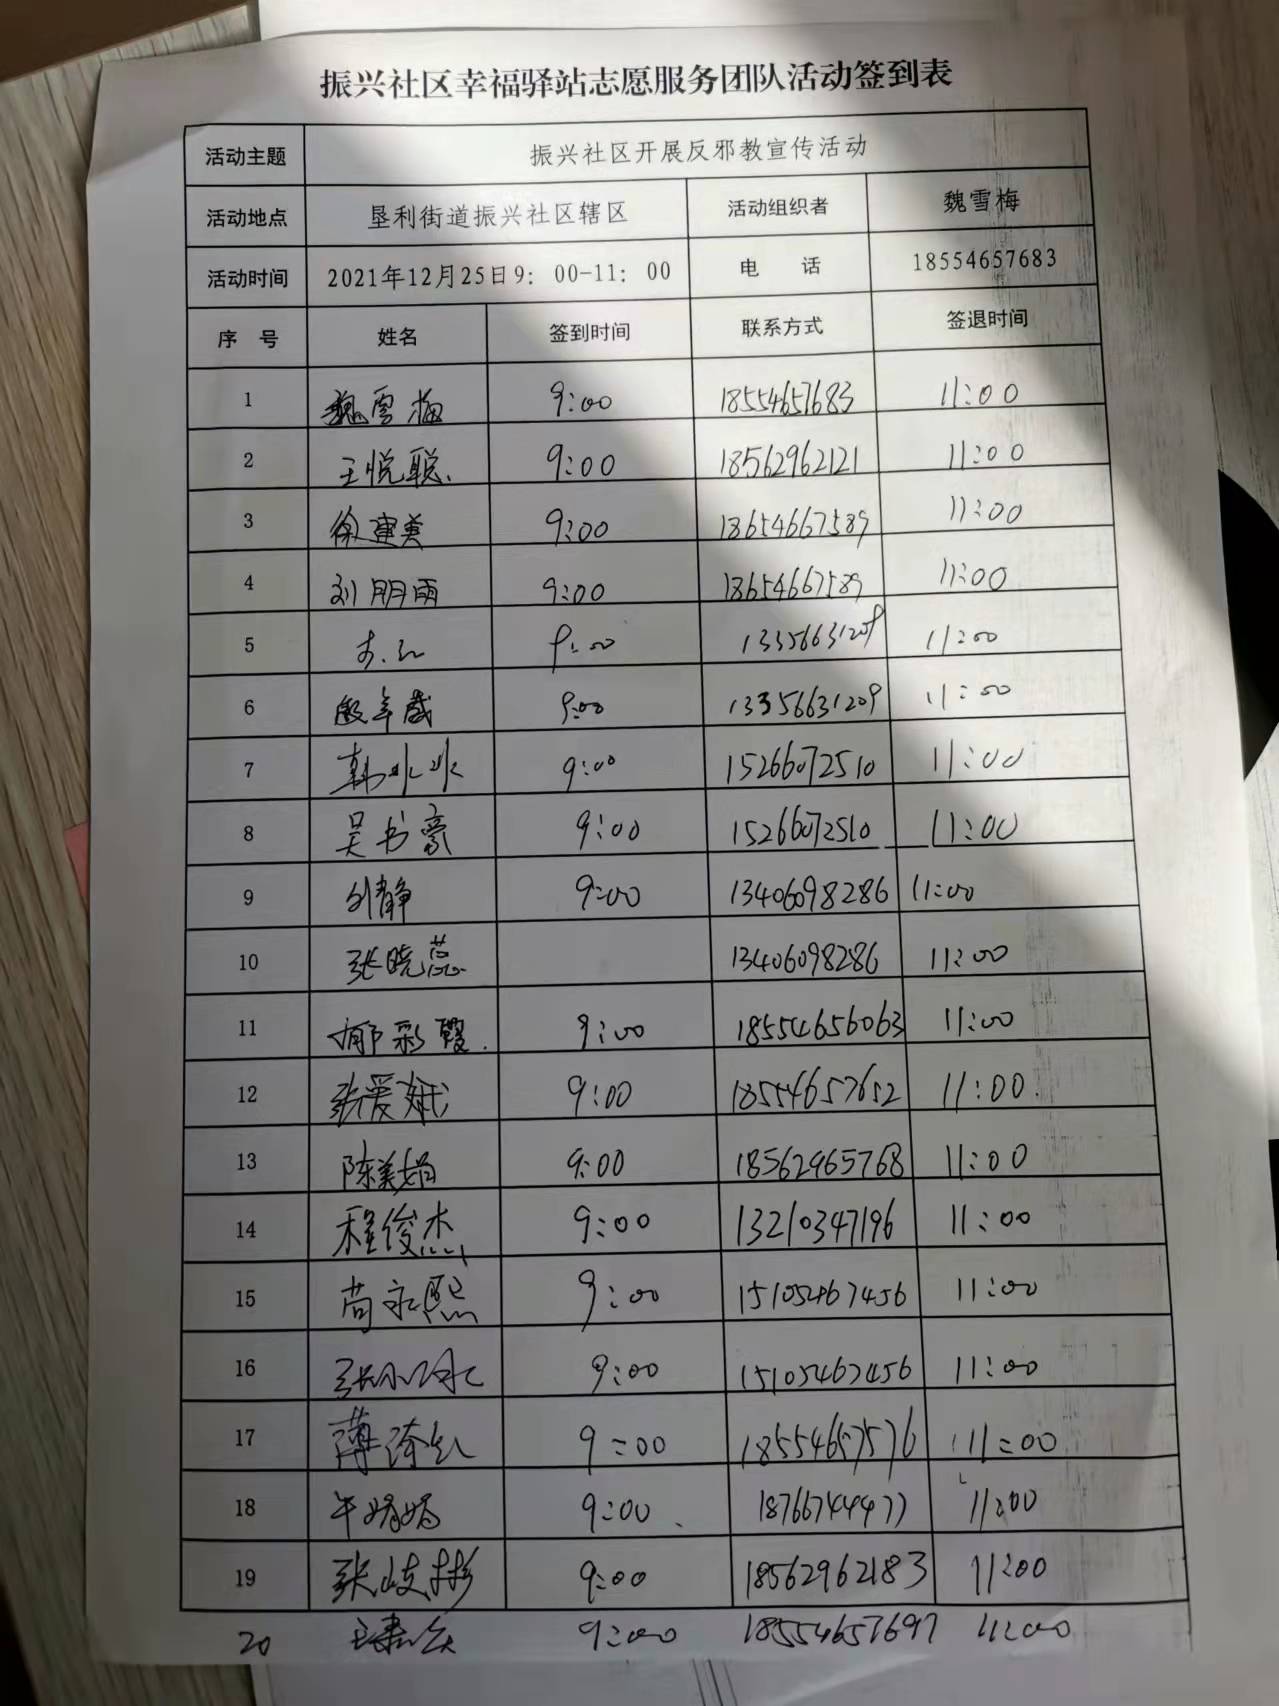 振兴社区幸福驿站志愿服务团队活动签到表
活动主题 振兴社区开展反邪教宣传活动
活动地点 垦利街道振兴社区辖区 活动组织者 魏雪梅
活动时间 2021年12月25日9：00-11：00 电 话 18554657683
序 号 姓名 签到时间 联系方式 签退时间
1 魏雪梅 9:00 18554657683 11:00
2 王悦聪 9:00 18562962121 11:00
3 徐建美 9:00 18654667589 11:00
4 刘明雨 9:00 18654667589 11:00
5 9:00 13356631209 11:00
6 9:00 13356631209 11:00
7 韩冰冰 9:00 15266072510 11:00
8 吴书豪 9:00 15266072510 11:00
9 刘静 9:00 13406098286 11:00
10 张晓蕊 13406098286 11:00
11 彩霞 9:00 18554656063 11:00
12 张爱娥 9:00 18554657652 11:00
13 陈美娟 9:00 18562965768 11:00
14 程俊杰 9:00 13210347196 11:00
15 尚永熙 9:00 15105467456 11:00
16 张小冰 9:00 15105467456 11:00
17 薄 9:00 18554657576 11:00
18 牛娟娟 9:00 18766744477 11:00
19 张岐彬 9:00 18562962183 11:00
20 9:00 18554657697 11:00